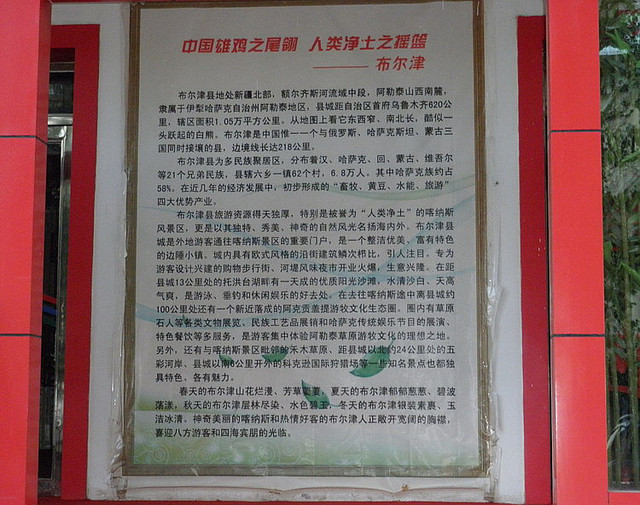 中国雄鸡之尾翎 人类净土之摇篮
——— 布尔津
布尔津县地处新疆北部，额尔齐斯河流域中段，阿勒泰山西南麓，
隶属于伊犁哈萨克自治州阿勒泰地区，县城距自治区首府乌鲁木齐620公
里，辖区面积1.05万平方公里。从地图上看它东西窄、南北长，酷似一
头跃起的白熊。布尔津是中国惟一一个与俄罗斯、哈萨克斯坦、蒙古三
国同时接壤的县，边境线长达218公里。
布尔津县为多民族聚居区，分布着汉、哈萨克、回、蒙古、维吾尔
等21个兄弟民族，县辖六乡一镇62个村，6.8万人。其中哈萨克族约占
58%。在近几年的经济发展中，初步形成的“畜牧、黄豆、水能、旅游”
四大优势产业。
布尔津县旅游资源得天独厚，特别是被誉为“人类净土”的喀纳斯
风景区，更是以其独特、秀美、神奇的自然风光名扬海内外。布尔津县
城是外地游客通往喀纳斯景区的重要门户，是一个整洁优美、富有特色
的边陲小镇。城内具有欧式风格的沿街建筑鳞次栉比，引人注目。专为
游客设计兴建的购物步行街、河堤风味夜市开业火爆，生意兴隆。在距
县城13公里处的托洪台湖畔有一天成的优质阳光沙滩，水清沙白、天高
气爽，是游泳、垂钓和休闲娱乐的好去处。在去往喀纳斯途中离县城约
100公里处还有一个新近落成的阿克贡盖提游牧文化生态圈。圈内有草原
石人等各类文物展览、民族工艺品展销和哈萨克传统娱乐节目的展演、
特色餐饮等多服务，是游客集中体验阿勒泰草原游牧文化的理想之地。
另外，还有与喀纳斯景区毗邻的禾木草原、距县城以北约24公里处的五
彩河岸、县城以南6公里开外的科克逊国际狩猎场等一些知名景点也都独
具特色、各有魅力。
春天的布尔津山花烂漫、芳草萋萋，夏天的布尔津郁郁葱葱、碧波
荡漾，秋天的布尔津层林尽染、水色碧玉，冬天的布尔津银装素裹、玉
洁冰清。神奇美丽的喀纳斯和热情好客的布尔津人正敞开宽阔的胸襟，
喜迎八方游客和四海宾朋的光临。